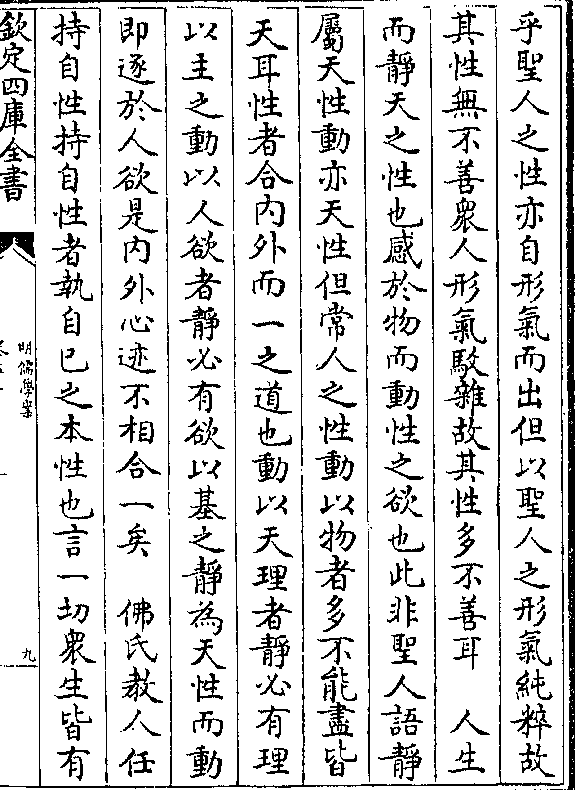 乎聖人之性亦自形氣而出但以聖人之形氣純粹故
其性無不善衆人形氣駁雜故其性多不善耳　人生
而靜天之性也感於物而動性之欲也此非聖人語靜
屬天性動亦天性但常人之性動以物者多不能盡皆
天耳性者合内外而一之道也動以天理者靜必有理
以主之動以人欲者靜必有欲以基之靜為天性而動
即逐於人欲是内外心迹不相合一矣　佛氏教人任
持自性持自性者執自己之本性也言一切衆生皆有
欽定四庫全書
明儒學案
九